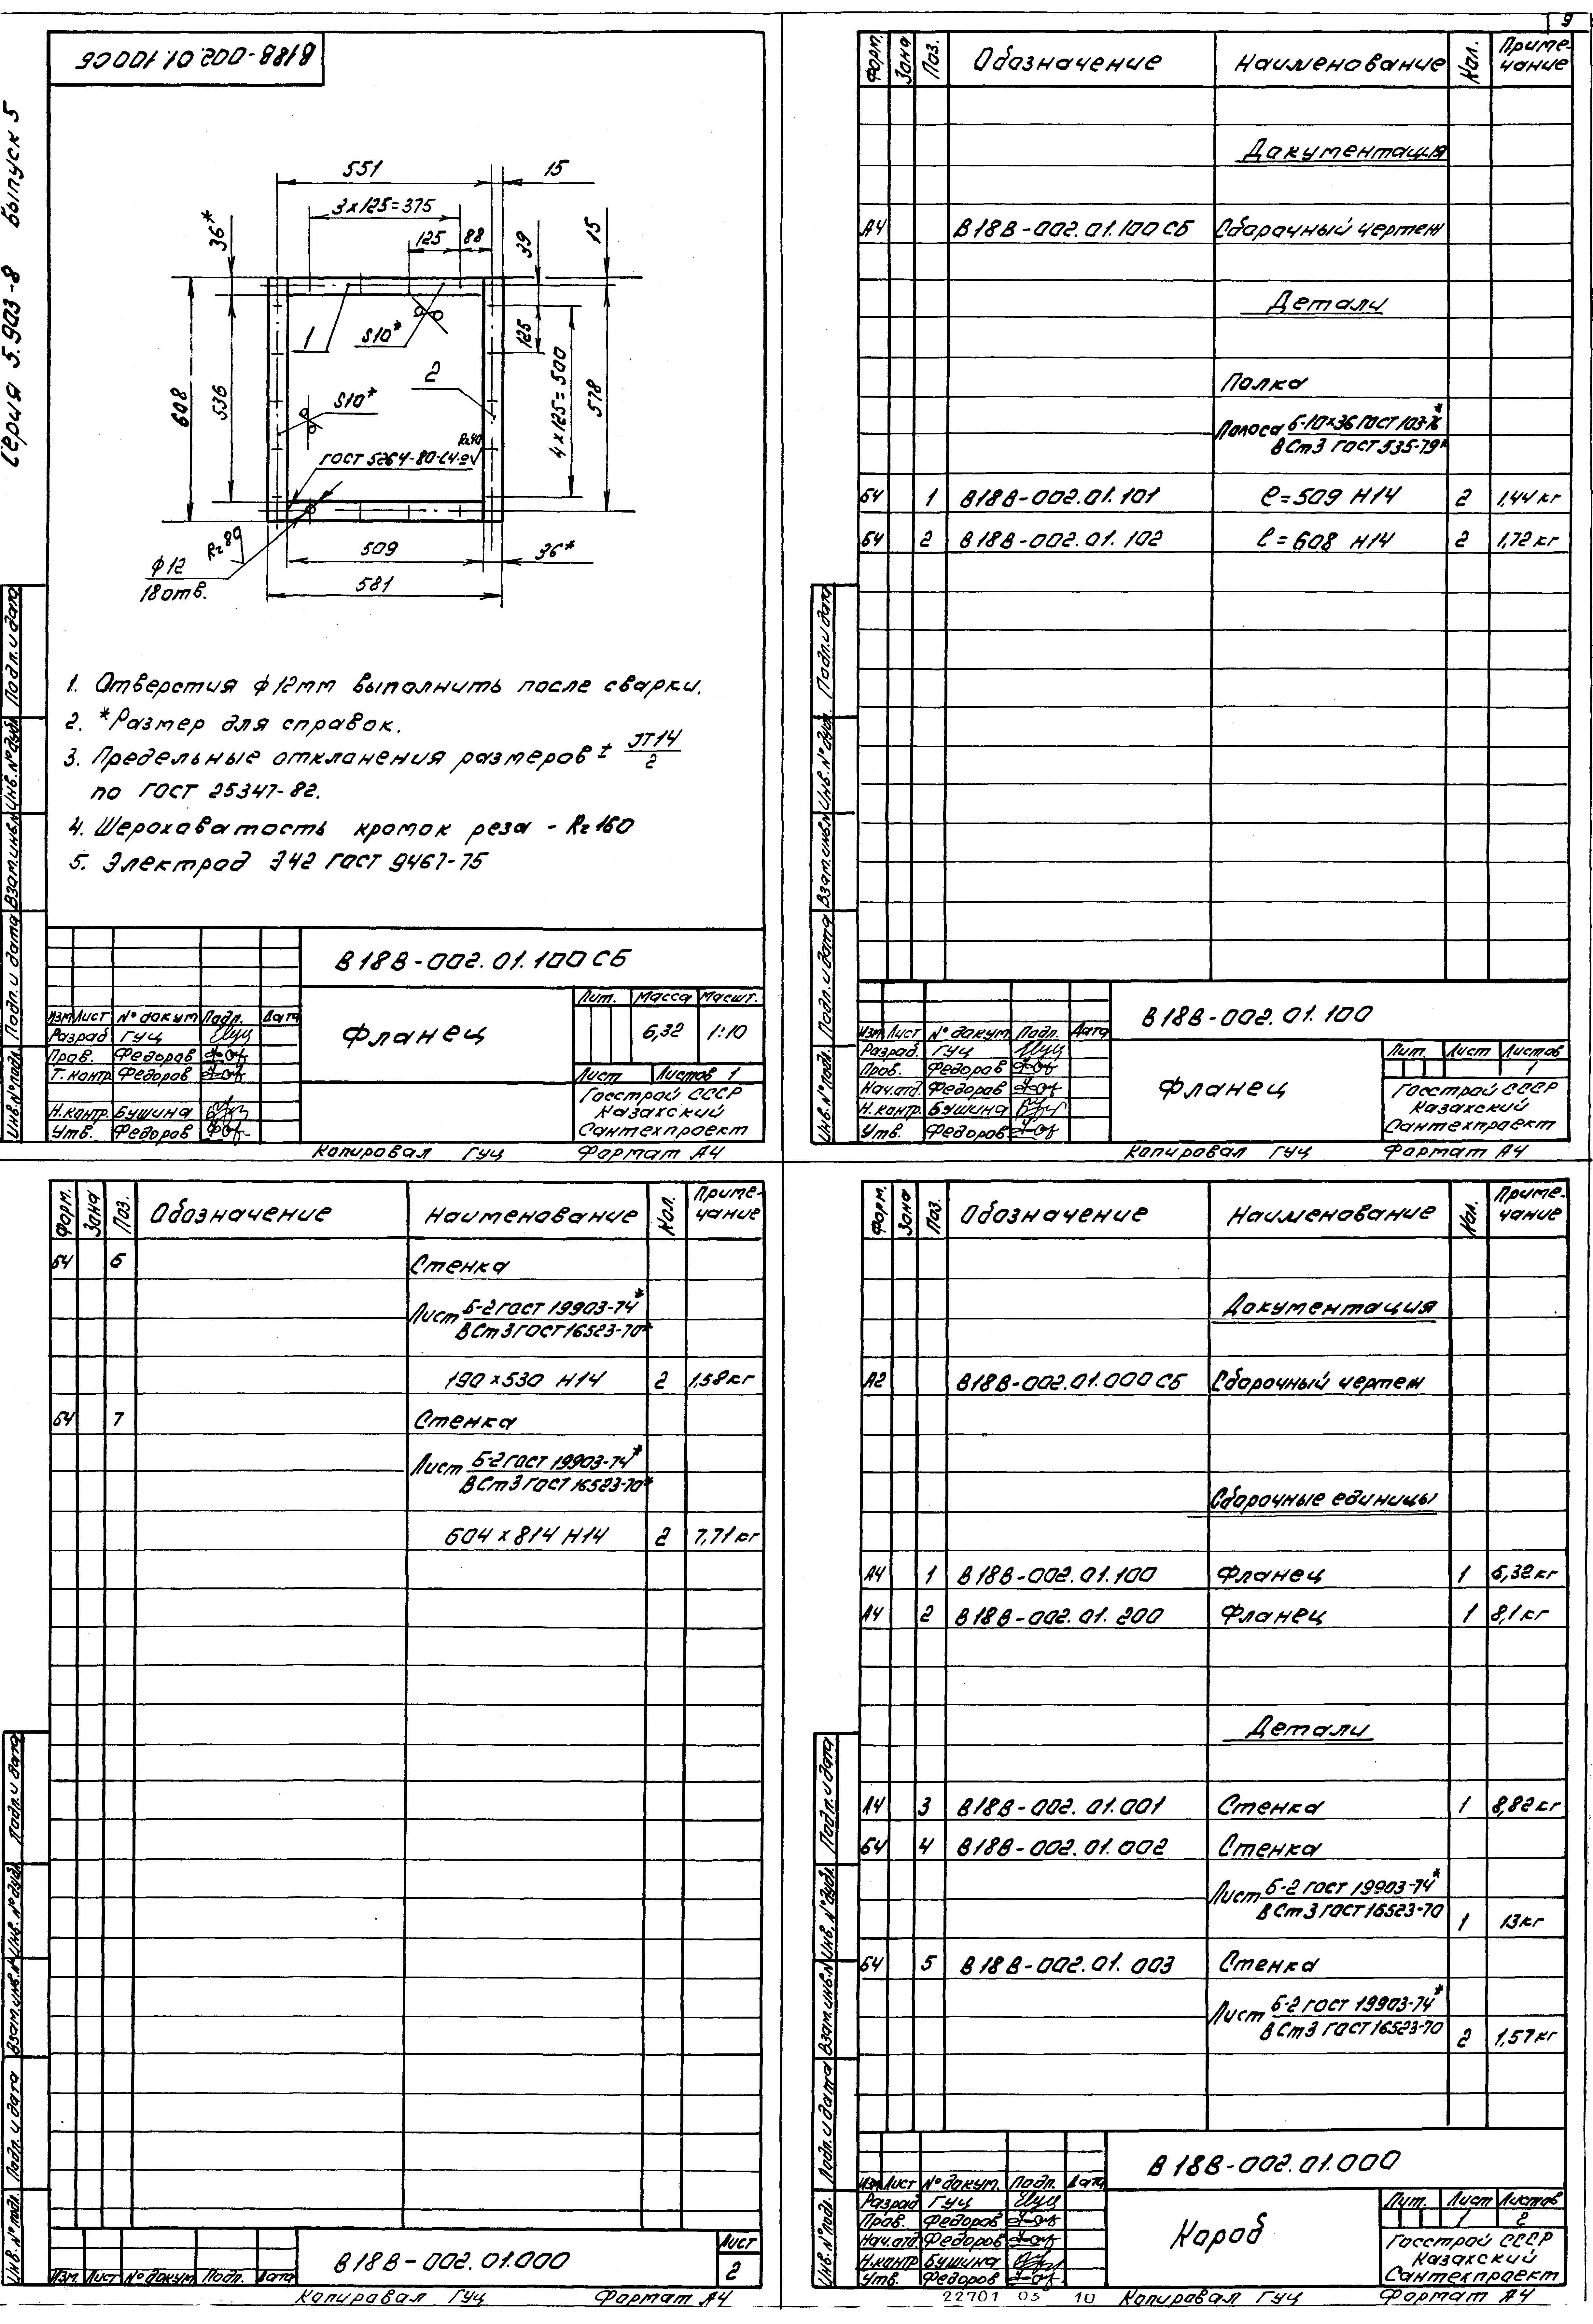 9
Серия 5.903-8 Выпуск 5
В18В-002.01.100СБ
551
15
3х125=375
36*
125
88
39
15
1
S10*
125
2
608
536
S10*
4х125=500
578
Rz40
ГОСТ 5264-80-С4-
Rz80
509
36*
ф12
18 отв.
581
1. Отверстия ф12мм выполнить после сварки.
2. *Размер для справок.
3. Предельные отклонения размеров ± JT14/2
по ГОСТ 25347-82.
4. Шероховатость кромок реза - Rz160
5. Электрод Э42 ГОСТ 9467-75
Инв.№подл. Подп. и дата Взам.инв.№ Инв.№дубл. Подп. и дата
В18В-002.01.100СБ
Изм Лист № докум Подп. Дата
Разраб Гуц
Пров. Федоров
Т.контр Федоров
Н.контр. Бушина
Утв. Федоров
Фланец
Лит. Масса Масшт.
6,32 1:10
Лист Листов 1
Госстрой СССР
Казахский
Сантехпроект
Копировал Гуц Формат А4
Форм. Зона Поз. Обозначение Наименование Кол. Приме-
чание
Документация
А4 В18В-002.01.100СБ Сборочный чертеж
Детали
Полка
Полоса Б-10х36 ГОСТ 103-76*
ВСт3 ГОСТ 535-79*
БЧ 1 В18В-002.01.101 ℓ=509 Н14 2 1,44кг
БЧ 2 В18В-002.01.102 ℓ=608 Н14 2 1,72кг
Инв.№подл. Подп. и дата Взам.инв.№ Инв.№дубл. Подп. и дата
В18В-002.01.100
Изм Лист № докум Подп. Дата
Разраб. Гуц
Пров. Федоров
Нач.отд. Федоров
Н.контр. Бушина
Утв. Федоров
Фланец
Лит. Лист Листов
1
Госстрой СССР
Казахский
Сантехпроект
Копировал Гуц Формат А4
Форм. Зона Поз. Обозначение Наименование Кол. Приме-
чание
БЧ 6 Стенка
Лист Б-2 ГОСТ 19903-74*
ВСт3 ГОСТ 16523-70*
190х530 Н14 2 1,58кг
БЧ 7 Стенка
Лист Б-2 ГОСТ 19903-74*
ВСт3 ГОСТ 16523-70*
604х814 Н14 2 7,71кг
Инв.№подл. Подп. и дата Взам.инв.№ Инв.№дубл. Подп. и дата
Изм. Лист № докум Подп. Дата
В18В-002.01.000
Лист
2
Копировал Гуц Формат А4
Форм. Зона Поз. Обозначение Наименование Кол. Приме-
чание
Документация
А2 В18В-002.01.000СБ Сборочный чертеж
Сборочные единицы
А4 1 В18В-002.01.100 Фланец 1 6,32кг
А4 2 В18В-002.01.200 Фланец 1 8,1кг
Детали
А4 3 В18В-002.01.001 Стенка 1 8,82кг
БЧ 4 В18В-002.01.002 Стенка
Лист Б-2 ГОСТ 19903-74*
ВСт3 ГОСТ 16523-70
1 13кг
БЧ 5 В18В-002.01.003 Стенка
Лист Б-2 ГОСТ 19903-74*
ВСт3 ГОСТ 16523-70
2 1,57кг
Инв.№подл. Подп. и дата Взам.инв.№ Инв.№дубл. Подп. и дата
В18В-002.01.000
Изм Лист № докум. Подп. Дата
Разраб Гуц
Пров. Федоров
Нач.отд Федоров
Н.контр Бушина
Утв. Федоров
Короб
Лит. Лист Листов
1 2
Госстрой СССР
Казахский
Сантехпроект
22701 05 10 Копировал Гуц Формат А4